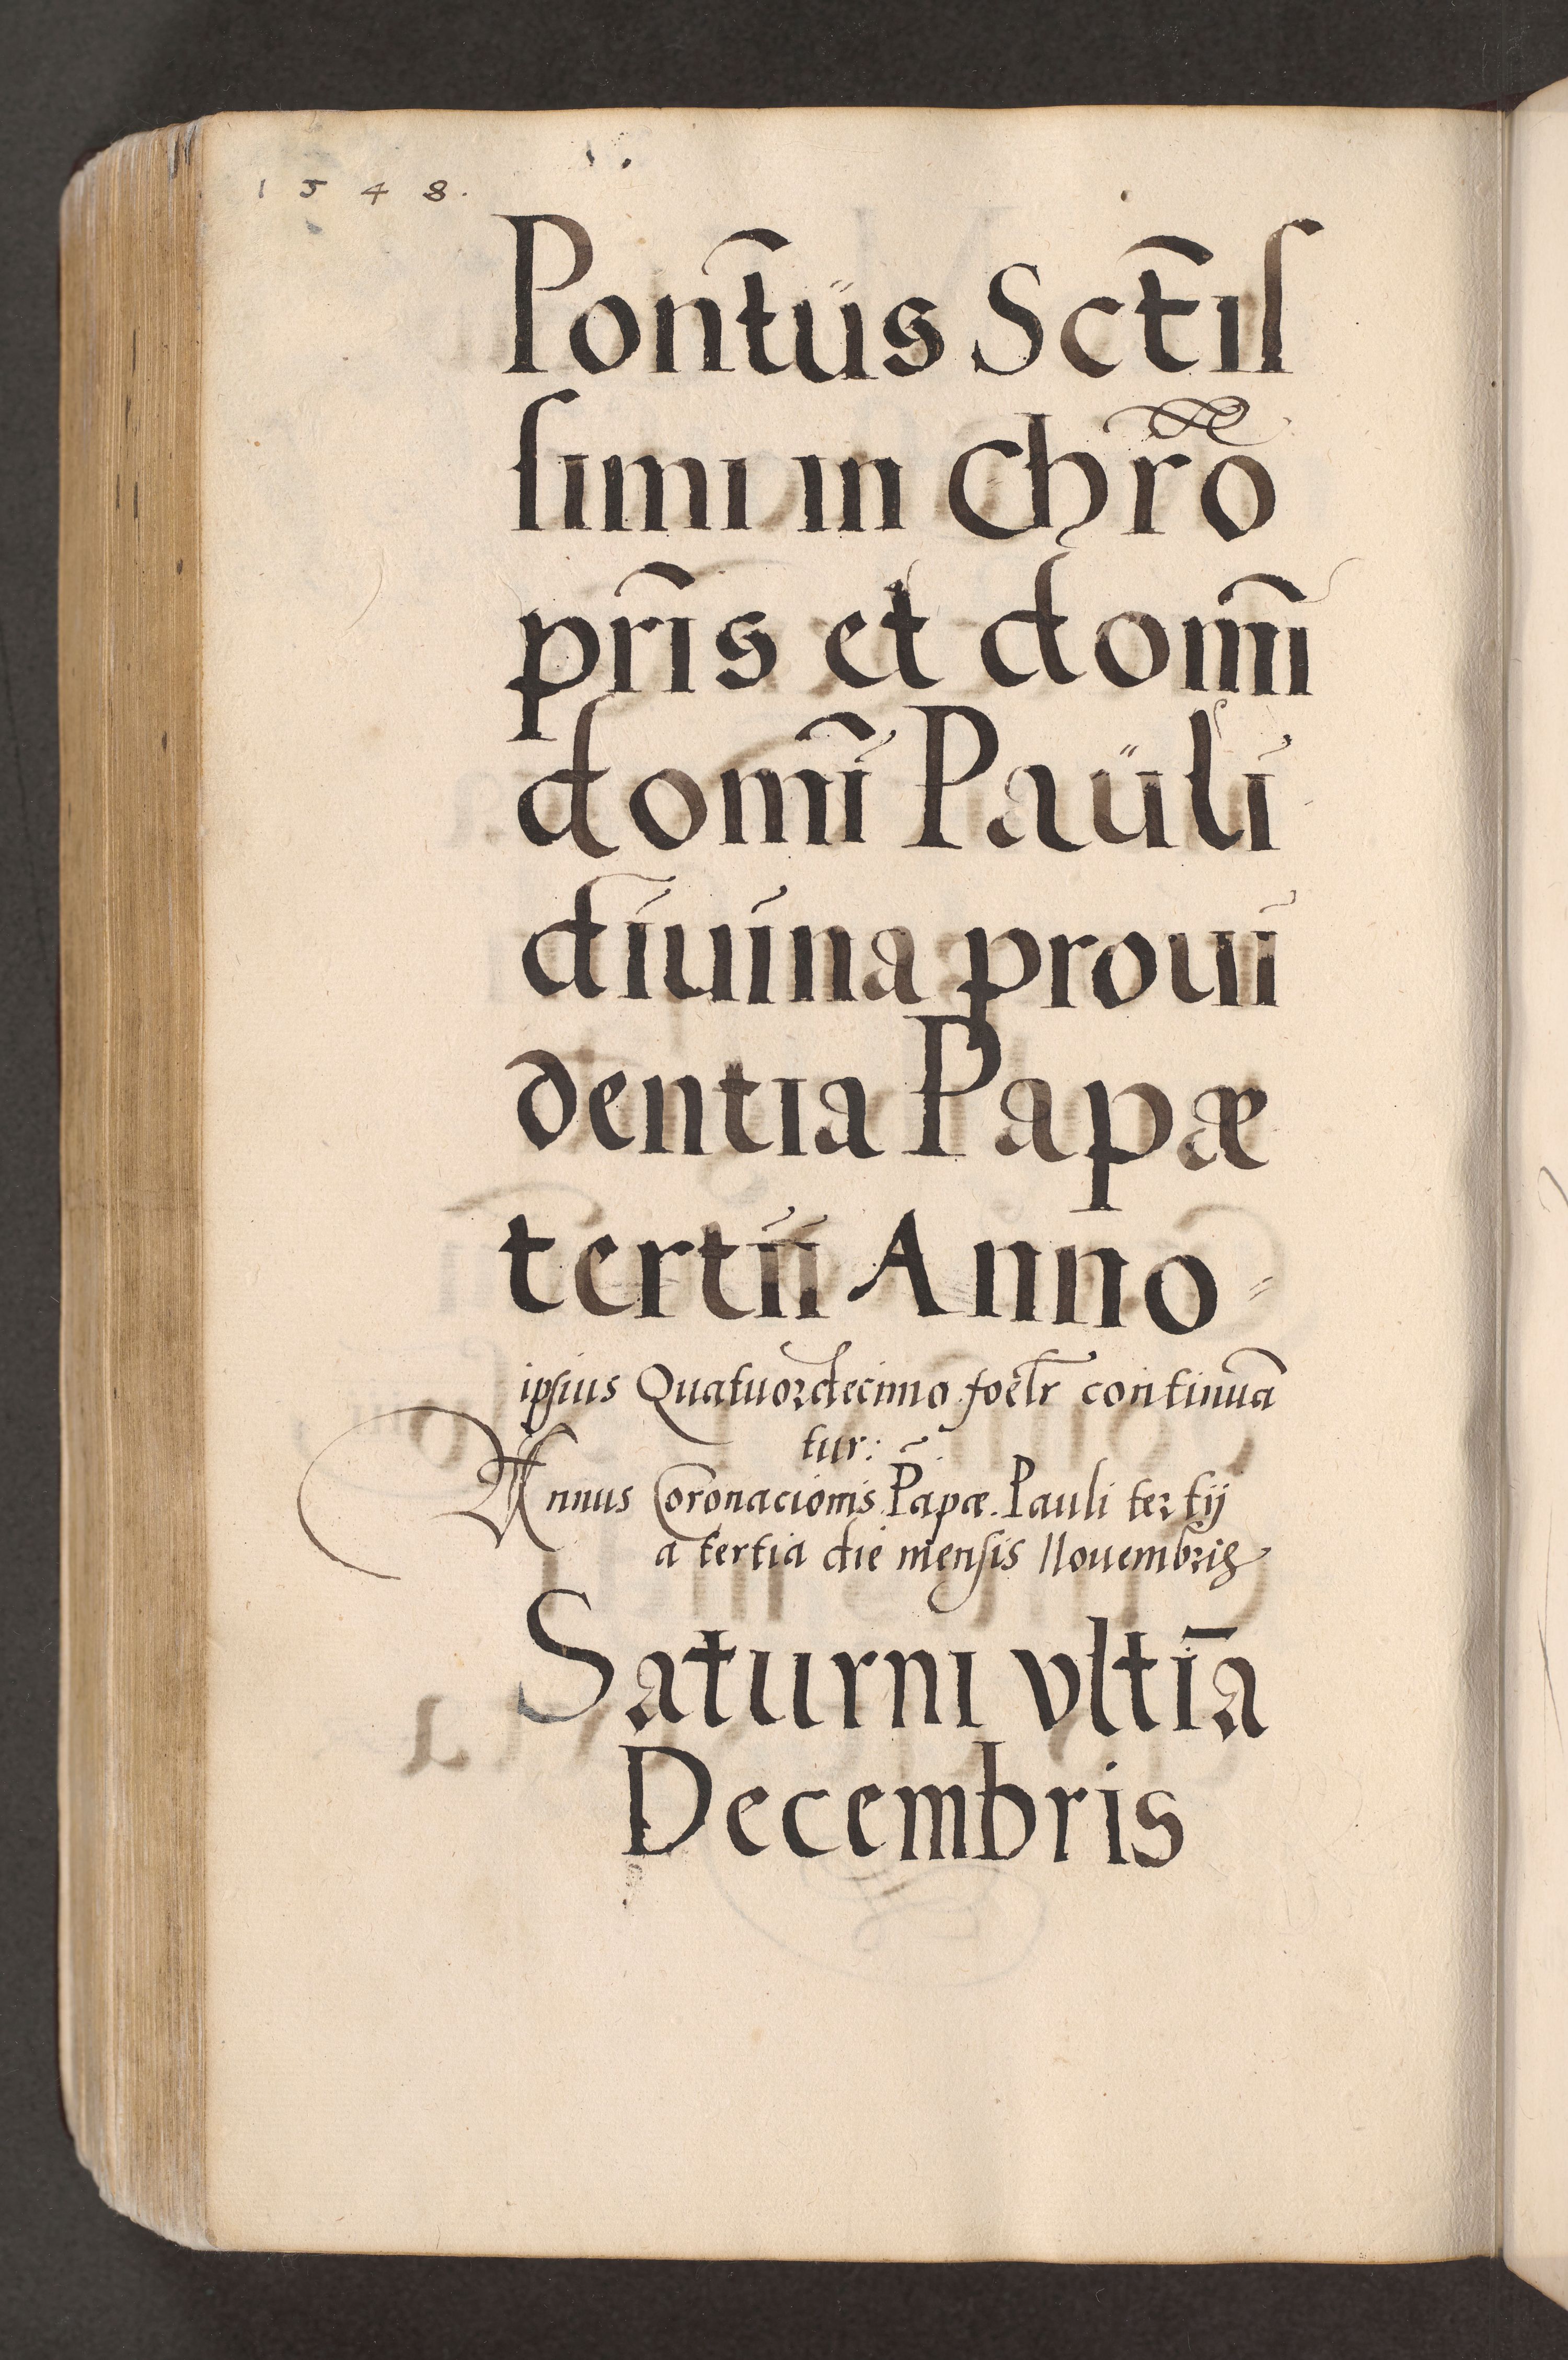 1 5 4 8.
Pont̃us Sct̃iſ
ſimi in Chr̃o
pr̃is et dom̃i
dom̃i Pauli
diuina proui
dentia Papæ
tertii Anno
ipsius Quatuordecimo fœlr̃ continua
tur:
Annus Coronacionis Papæ. Pauli tertij
a tertia die mensis Nouembris
Saturni vltĩa
Decembris